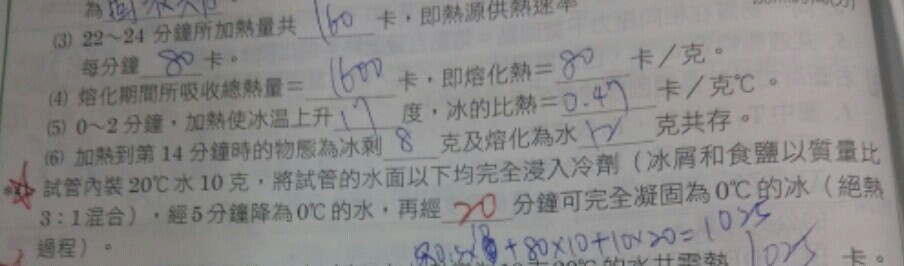 為
(3) 22～24 分鐘所加熱量共 160 卡，即熱源供熱速率
每分鐘 80 卡。
(4) 熔化期間所吸收總熱量＝ 1600 卡，即熔化熱＝ 80 卡／克。
(5) 0～2 分鐘，加熱使冰溫上升 17 度，冰的比熱＝ 0.47 卡／克℃。
(6) 加熱到第 14 分鐘時的物態為冰剩 8 克及熔化為水 12 克共存。
試管內裝 20℃水 10 克，將試管的水面以下均完全浸入冷劑（冰屑和食鹽以質量比
3：1混合），經5分鐘降為0℃的水，再經 20 分鐘可完全凝固為 0℃的冰（絕熱
過程）。
+80×10+10×20=1025
1025 卡。